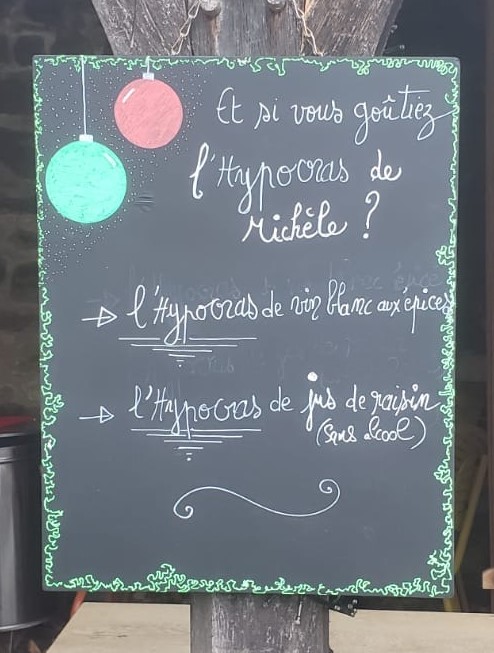 Et si vous goûtiez
l'Hypocras de
Michèle ?
→ l'Hypocras de vin blanc aux epices
→ l'Hypocras de jus de raisin
(sans alcool)